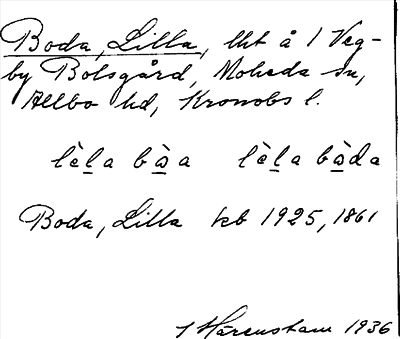 Boda, Lilla, lht å 1 Veg-
by Bolsgård, Moheda sn,
Allbo hd, Kronobs l.
lèl̠a bà̠a lèl̠a bà̠da
Boda, Lilla kb 1925, 1861
Härenstam 1936